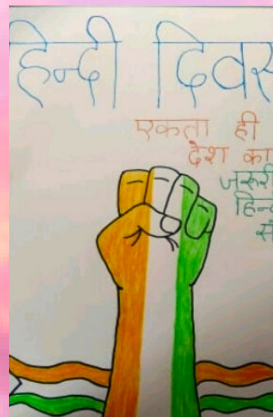 हिन्दी दिवस
एकता ही
देश का
जरूरी
हिन्द
सं